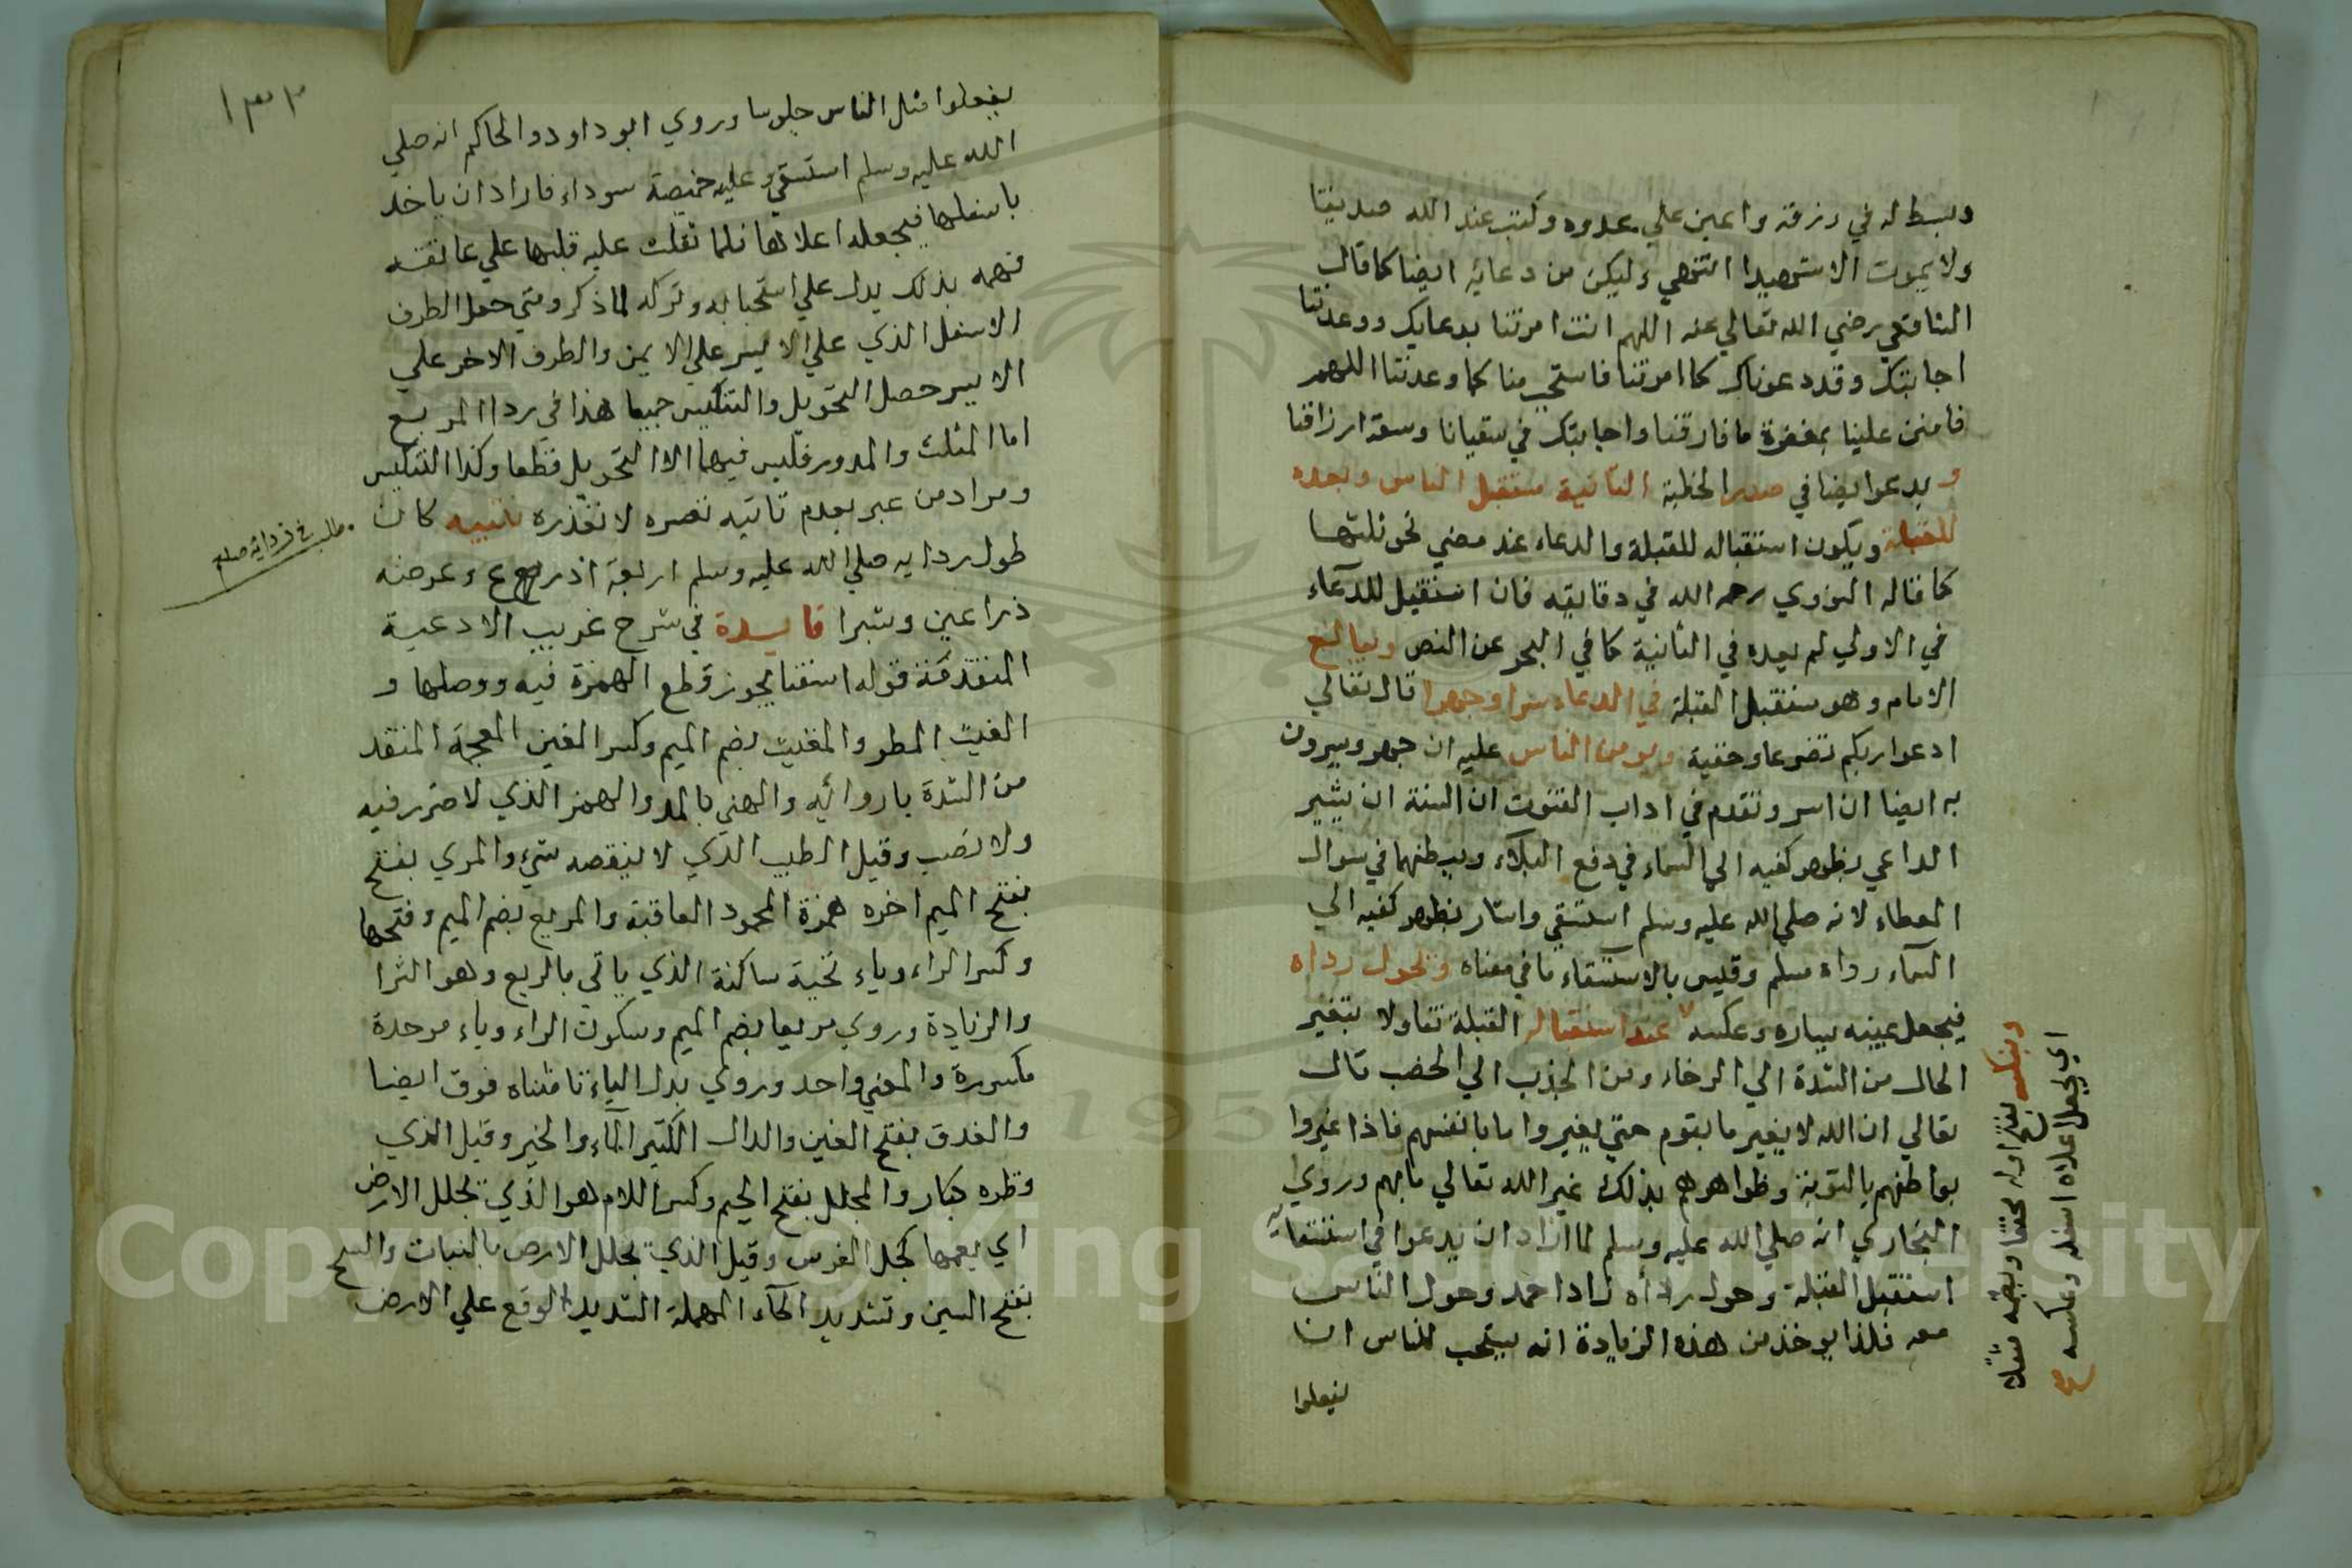 وبسط له في رزقه واعين علي عدوه وكتب عند الله صديقا
ولا يموت الا شهيدا انتهي وليكن من دعائه ايضا كما قال
الشافعي رضي الله تعالي عنه اللهم انت امرتنا بدعايك ووعدتنا
اجابتك وقد دعوناك كما امرتنا فاستجب منا كما وعدتنا اللهم
فامنن علينا بمغفرة ما قارفنا واجابتك في سقيانا وسعة ارزاقنا
ويدعوا ايضا في صدر الخطبة الثانية مستقبل الناس وبعده
للقبلة ويكون استقباله للقبلة والدعاء عند مضي نحو ثلثها
كما قاله النووي رحمه الله في دقايقه فان استقبل للدعاء
في الاولي لم يعده في الثانية كما في البحر عن النص ويبالغ
الامام وهو مستقبل القبلة في الدعاء سرا وجهرا قال تعالي
ادعوا ربكم تضرعا وخفية ويومن الناس عليه ان جهر ويسرون
به ايضا ان اسر وتقدم في اداب القنوت ان السنة ان يشير
الداعي بظهر كفيه الي السماء في دفع البلاء وببطنهما في سوال
العطاء لانه صلي الله عليه وسلم استسقي واشار بظهر كفيه الي
السماء رواه مسلم وقيس بالاستسقاء ما في معناه ويحول رداه
فيجعل يمينه يساره وعكسه عند استقباله القبلة تفاولا بتغير
الحال من الشدة الي الرخاء ومن الجذب الي الخصب قال
تعالي ان الله لا يغير ما بقوم حتي يغيروا ما بانفسهم فاذا غيروا
بواطنهم بالتوبة وظواهرهم بذلك غير الله تعالي ما بهم وروي
البخاري انه صلي الله عليه وسلم لما اراد ان يدعوا في استسقائه
استقبل القبلة وحول رداه زاد احمد وحول الناس
معه فلذا يوخذ من هذه الزيادة انه يستحب للناس ان
يفعلوا
وينكسه بفتح اوله مخففا وبضمه مثقلا
اي يجعل اعلاه اسفله وعكسه صح
١٣٣
يفعلوا مثل الناس جلوسا وروي ابو داود والحاكم انه صلي
الله عليه وسلم استسقي وعليه خميصة سوداء فاراد ان ياخد
باسفلها فيجعله اعلاها فلما ثقلت عليه قلبها علي عاتقه
فهمه بذلك يدل علي استحبابه وتركه لما ذكر ومتي جعل الطرف
الاسفل الذي علي الايسر علي الايمن والطرف الاخر علي
الايسر حصل التحويل والتنكيس جميعا هذا في ردا المربع
اما المثلث والمدور فليس فيهما الا التحويل قطعا وكذا التنكيس
ومراد من عبر بعدم تاتيه تعسره لا تعذره تنبيه كان
طول ردايه صلي الله عليه وسلم اربعة اذرع وعرضه
ذراعين وشبرا فايدة في شرح غريب الادعية
المتقدمة قوله اسقنا يجوز قطع الهمزة فيه ووصلها و
الغيث المطر والمغيث بضم الميم وكسر الغين المعجمة المنقد
من الشدة باروائه والهني بالمد والهمز الذي لا ضرر فيه
ولا نصب وقيل الطيب الذي لا ينقصه شيء والمري بفتح
بفتح الميم اخره همزة المحمود العاقبة والمريع بضم الميم وفتحها
وكسر الراء وياء تحية ساكنة الذي ياتي بالريع وهو الثرا
والزيادة وروي مربعا بضم الميم وسكون الراء وباء موحدة
مكسورة والمعني واحد وروي بدل الباء تا مثناه فوق ايضا
والغدق بفتح الغين والدال الكثير الماء والخير وقيل الذي
قطره كبار والمجلل بفتح الجيم وكسر اللام هو الذي تجلل الارض
اي يعمها كجل الفرس وقيل الذي تجلل الارض بالنبات والسح
بفتح السين وتشديد الحاء المهملة الشديد الوقع علي الارض
Copyright © King Saud University
1957